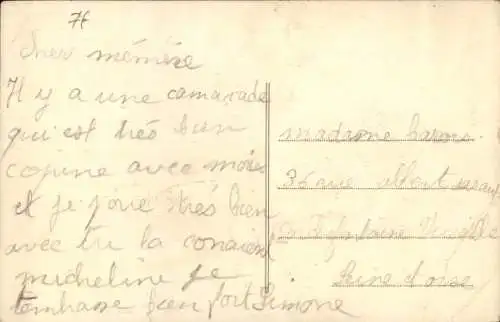 76
Cher mémère
Il y a une camarade
qui est trés bien
copine avec moi
et je joue trés bien
avec tu la conaien
micheline je
tembrasse bien fort Simone
madame
36 rue albert
Seine et oise